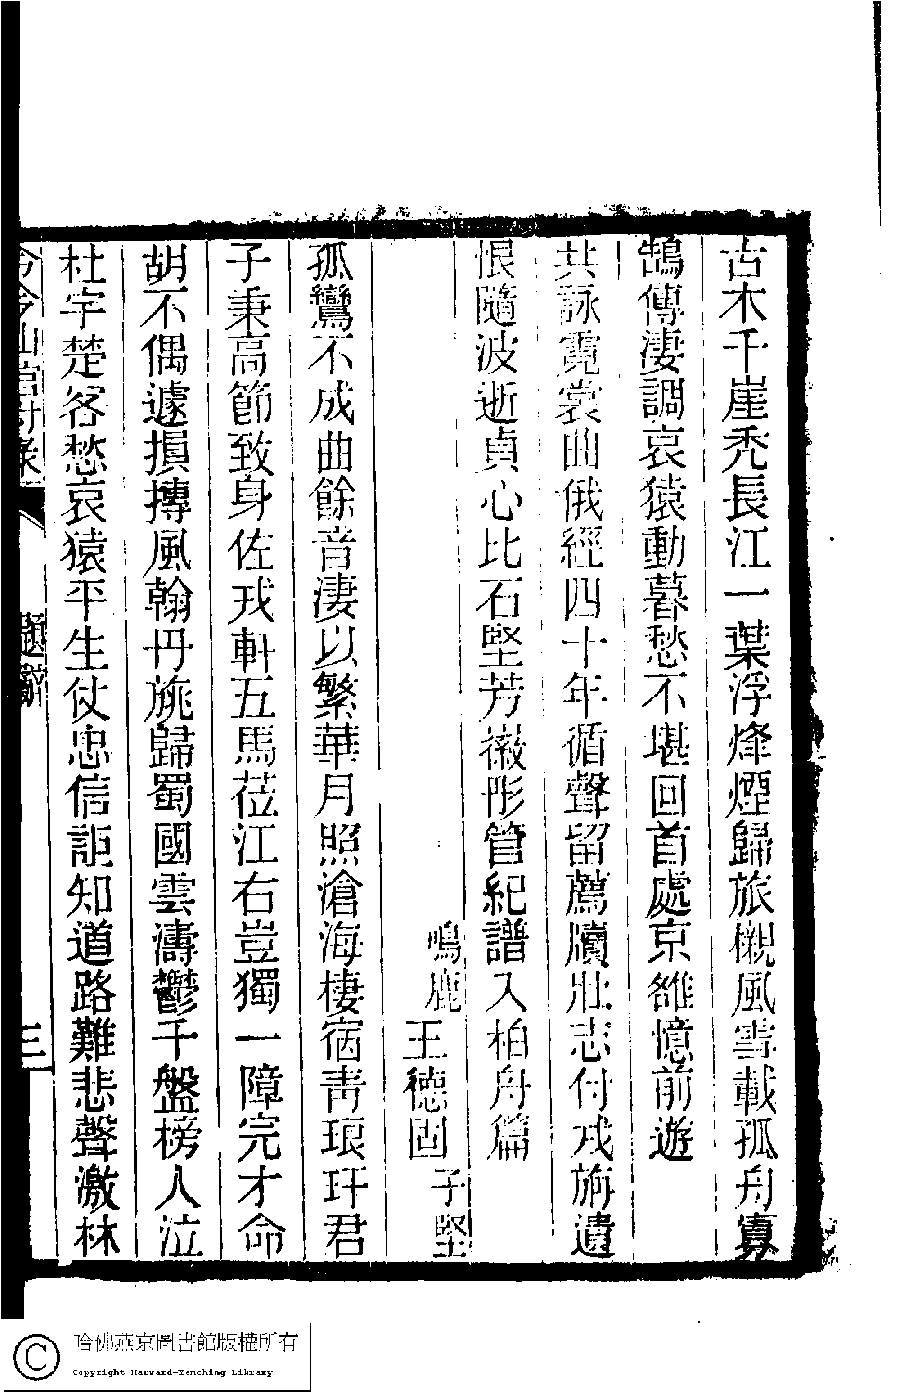 古木千崖禿長江一葉浮烽煙歸旅櫬風雪載孤舟寡
鵠傳淒調哀猿動暮愁不堪回首處京雒憶前遊
共詠霓裳曲俄經四十年循聲留薦牘壯志付戎旃遺
恨隨波逝貞心比石堅芳徽彤管紀譜入柏舟篇
鳴鹿王德固子堅
孤鸞不成曲餘音淒以繁華月照滄海棲宿青琅玕君
子秉高節致身佐戎軒五馬莅江右豈獨一障完才命
胡不偶遽損摶風翰丹旐歸蜀國雲濤鬱千盤榜人泣
杜宇楚客愁哀猿平生仗忠信詎知道路難悲聲激林
題辭
三
哈佛燕京圖書館版權所有
Copyright Harvard-Yenching Library